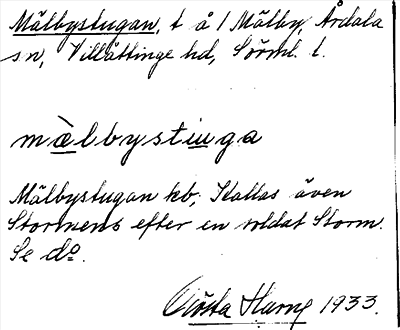 Mälbystugan, t å / Mälby, Årdala
sn, Villåttinge hd, Sörml. l.
mälbystiuga
Mälbystugan kb, Kallas även
Stormens efter en soldat Storm.
Se do.
Gösta Harng 1933.